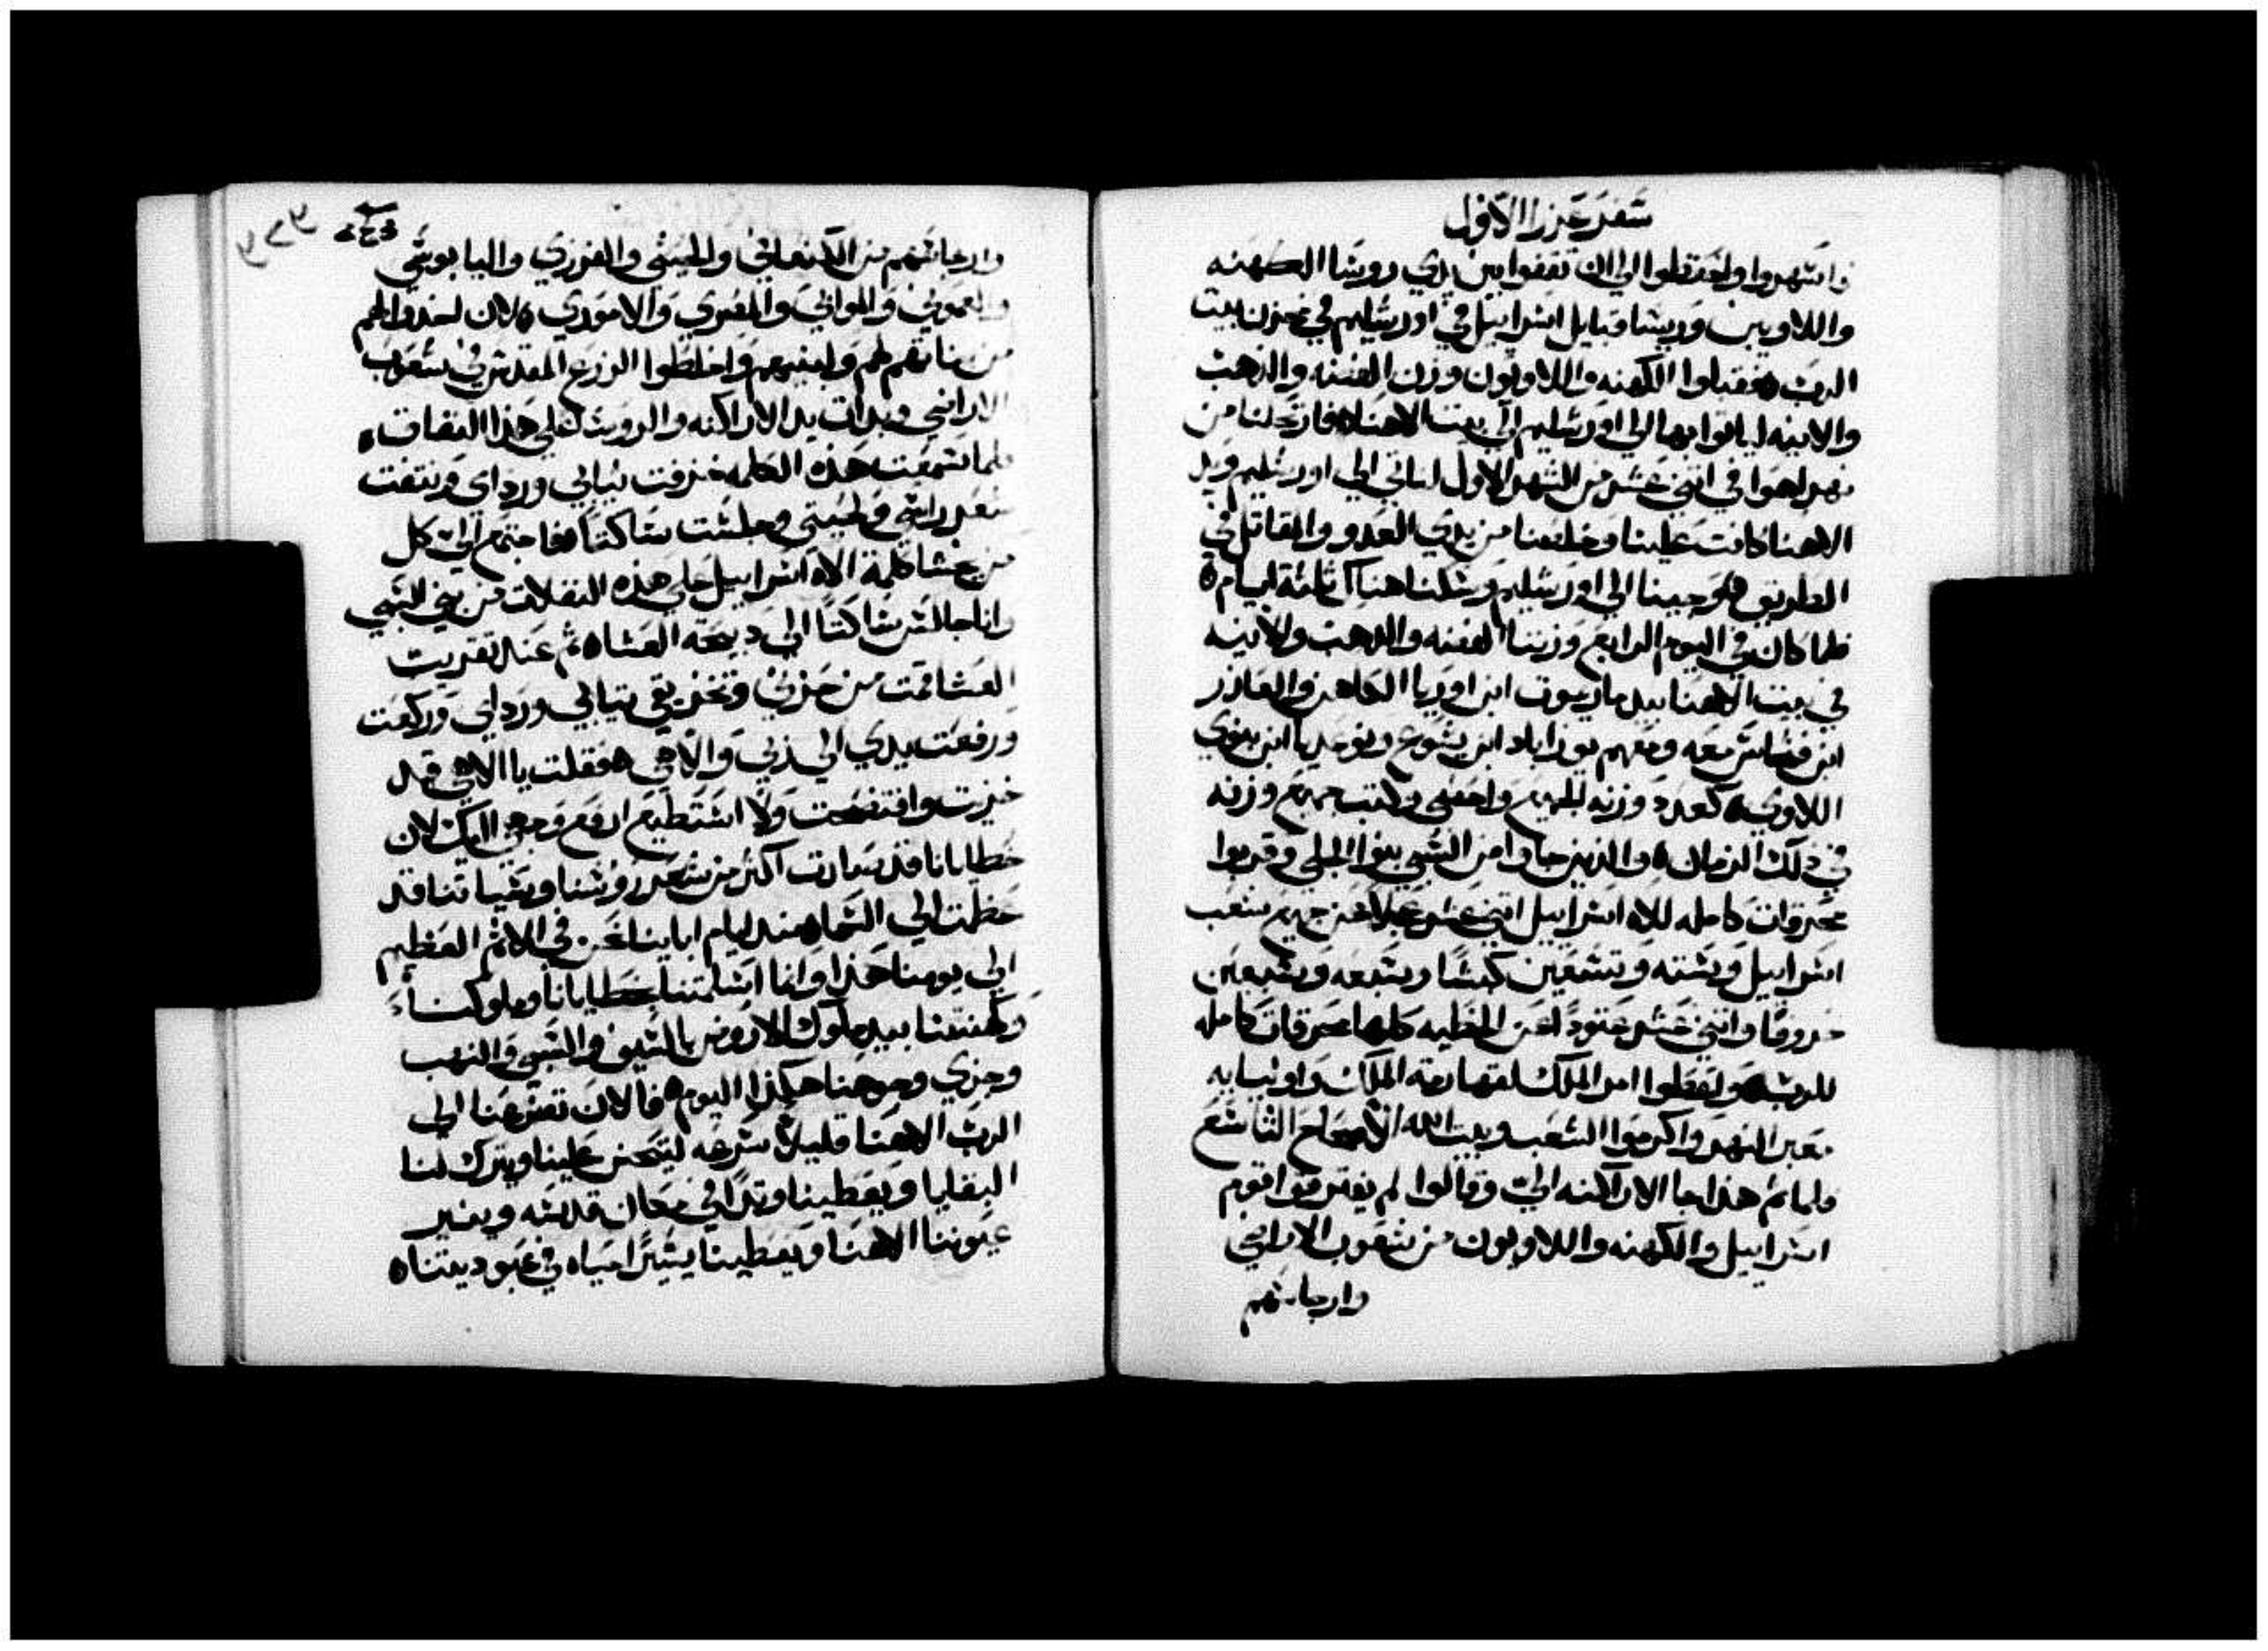 سفر عزرا الاول
واسهروا واحتفظوا الي ان تقفوا بين يدي روسا الكهنه
واللاويين وريسا قبايل اسراييل في اورشليم في مخزن بيت
الرب فقبلوا الكهنه واللاويون وزن الفضه والذهب
والانيه لياتوا بها الي اورشليم الي بيت الاهنا فارتحلنا من
نهر اهوا في اثني عشر من الشهر الاول لناتي الي اورشليم ويد
الاهنا كانت علينا وخلصنا من يدي العدو والمقاتل في
الطريق وجينا الي اورشليم وسكنا هناك ثلثة ايام
فلما كان في اليوم الرابع وزننا الفضه والذهب والانيه
في بيت الاهنا بيد ماريموت ابن اوريا الكاهن والعازر
ابن فنساس معه ومعهم يوزاباد ابن يشوع ونوعديا ابن بنوي
اللاوي كعدد وزنه للجميع واحصي وكتب جميع وزنه
في ذلك الزمان والذين جاوا من السبي بنوا الجلي وقربوا
محرقات كامله للاه اسراييل اثني عشر عجلا عن جميع شعب
اسراييل وسته وتسعين كبشا وسبعه وسبعين
خروفا واثني عشر عتودا عن الخطيه كلها محرقات كامله
للرب وفعلوا امر الملك لقهارمة الملك واونيابه
بعبر النهر واكرموا الشعب وبيت الله الاصحاح التاسع
ولما تم هذا جا الاراكنه الي وقالوا لم يفترقوا قوم
اسراييل والكهنه واللاويون من شعوب الاراضي
وارجاستهم
وارجاستهم من الكنعاني والحيثي والفرزي واليابوسي
والعموني والموابي والمصري والاموري لان اخذوا لهم
من بناتهم لهم ولبنيهم واخلطوا الزرع المقدس في شعوب
الاراضي وبدات يد الاراكنه والروسا علي هذا النفاق
فلما سمعت هذه الكلمه خزقت ثيابي ورداي ونتفت
شعر راسي ولحيتي وجلست ساكتا فاجتمع الي كل
من يخشا كلمة الاه اسراييل علي هذه النقلات من بني السبي
وانا جالس ساكتا الي دبيحة العشا ثم عند تقريب
العشا قمت من حزني وتخزيقي تيابي ورداي وركعت
ورفعت يدي الي ربي والاهي فقلت يا الاهي قد
خزيت وافتضحت ولا استطيع ارفع وجهي اليك لان
خطايانا قد صارت اكثر من شعر روسنا وسياتنا قد
عظمت الي السما منذ ايام ابايننا نحن في الاثم العظيم
الي يومنا هذا وانا اسلمتنا بخطايانا وملوكنا
وكهنتنا بيد ملوك الارض بالسيف والسبي والنهب
وخزي وجوهنا هكذا اليوم فالان تضرعنا الي
الرب الاهنا قليلا سرعه ليتحنن علينا ويترك لنا
البقايا ويعطينا وتدا في مكان قدسه وينير
عيوننا الاهنا ويعطينا يسيرا حياه في عبوديتنا